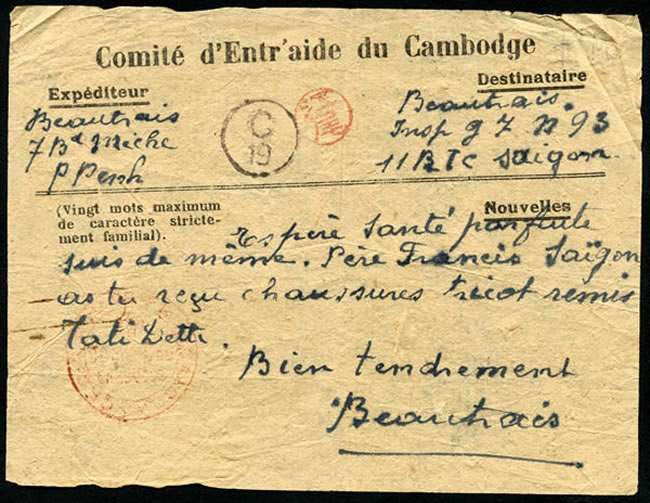 Comité d'Entr'aide du Cambodge
Expéditeur
Beautrais
7 Bd Miche
P Penh
C
19
Destinataire
Beautrais.
Insp g 7 N 93
11 R I C Saïgon
(Vingt mots maximum
de caractère stricte-
ment familial).
Nouvelles
Espère Santé parfaite
suis de même. Père Francis Saïgon
as tu reçu chaussures tricot remis
Tati Dette.
Bien tendrement
Beautrais